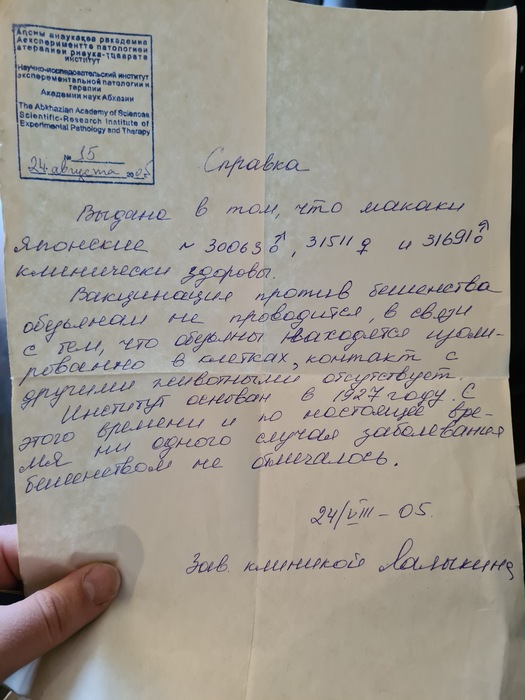 Аԥсны анаукақәа ракадемиа
Аексперименттә патологиеи
атерапиеи рнаука-ҭҵааратә
институт
Научно-исследовательский институт
экспериментальной патологии и
терапии
Академии наук Абхазии
The Abkhazian Academy of Sciences
Scientific-Research Institute of
Experimental Pathology and Therapy
№ 15
24 августа 2005
Справка
Выдана в том, что макаки
японские № 30063♂, 31511♀ и 31691♂
клинически здоровы.
Вакцинация против бешенства
обезьянам не проводится, в связи
с тем, что обезьяны находятся изоли-
рованно в клетках, контакт с
другими животными отсутствует.
Институт основан в 1927 году. С
этого времени и по настоящее вре-
мя ни одного случая заболевания
бешенством не отмечалось.
24/VIII – 05.
Зав. клиникой Лалыкина